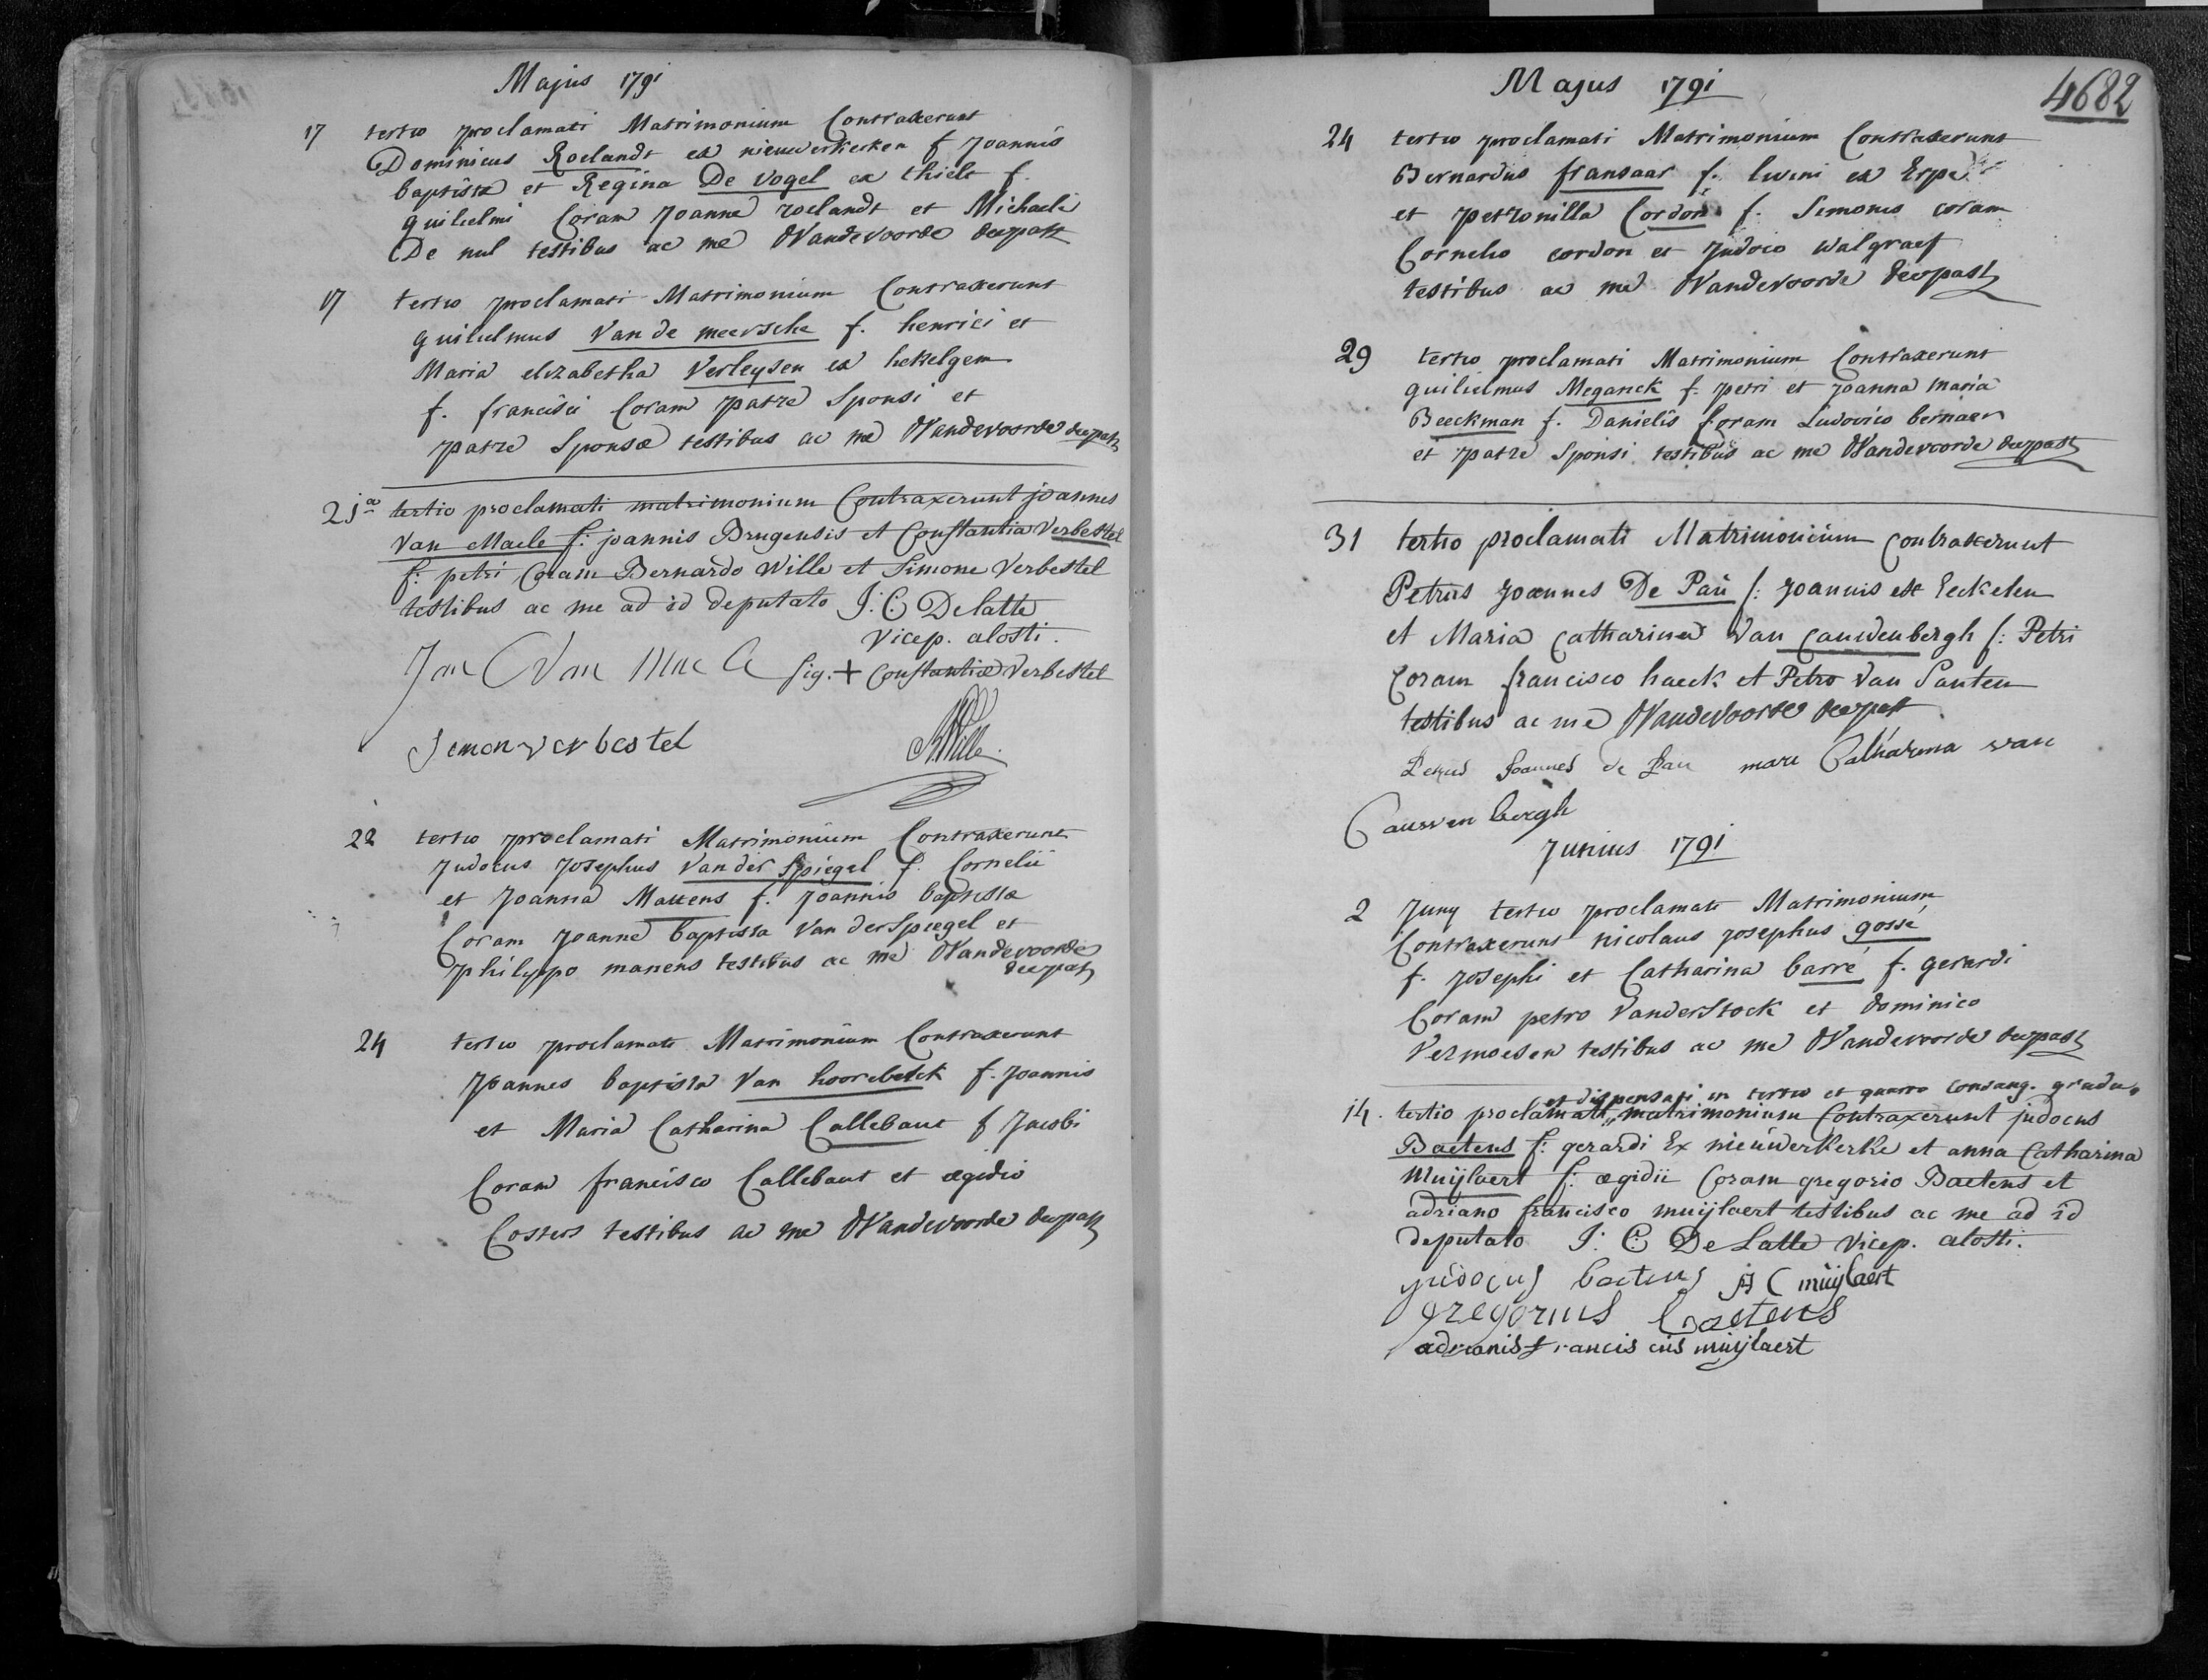 Majus 1791
17 tertio proclamati Matrimonium Contraxerunt
Dominicus Roelandt ex nieuwerkerken f Joannis
baptistæ et Regina De Vogel ex thielt f.
guilielmi Coram Joanne roelandt et Michaele
De nul testibus ac me Wandevoorde decpast
17 tertio proclamati Matrimonium Contraxerunt
guilielmus Van de meersche f. henrici et
Maria elizabetha Verleysen ex hekelgem
f. francisci Coram patre Sponsi et
patre Sponsæ testibus ac me Wandevoorde decpast
21a tertio proclamati matrimonium Contraxerunt joannes
Van Maele f: joannis Brugensis et Constantia Verbestel
f: petri Coram Bernardo Wille et Simone Verbestel
testibus ac me ad id deputato J: C Delatte
Vicep. alosti.
Jan Van Mae le sig. + Constantiæ Verbestel
Semon verbestel
Wille
22 tertio proclamati Matrimonium Contraxerunt
Judocus Josephus Van der Spiegel f. Cornelii
et Joanna Mattens f. Joannis baptistæ
Coram Joanne baptista Van der Spiegel et
philippo manens testibus ac me Wandevoorde
decpast
24 tertio proclamati Matrimonium Contraxerunt
Joannes baptista Van hoorebeeck f. Joannis
et Maria Catharina Callebaut f Jacobi
Coram francisco Callebaut et ægidio
Costers testibus ac me Wandevoorde decpast
Majus 1791
4682
24 tertio proclamati Matrimonium Contraxerunt
Bernardus fransaar f. livini ex Erpe
et petronilla Cordon f. Simonis coram
Cornelio cordon et Judoco Walgraef
testibus ac me Wandevoorde decpast
29 tertio proclamati Matrimonium Contraxerunt
guilielmus Meganck f. petri et Joanna maria
Beeckman f. Danielis Coram Ludovico bernaer
et patre Sponsi testibus ac me Wandevoorde decpast
31 tertio proclamati Matrimonium contraxerunt
Petrus Joannes De Pau f: Joannis ex Eeckelen
et Maria catharina Van Cauwenbergh f: Petri
Coram francisco haeck et Petro Van Santen
testibus ac me Wandevoorde decpast
Petrus Joannes de Pau mari Catharina van
Cauwen bergh
Junius 1791
2 Juny tertio proclamati Matrimonium
Contraxerunt nicolaus josephus gossé
f. josephi et Catharina barré f. gerardi
Coram petro VanderStock et dominico
Vermoesen testibus ac me Wandevoorde decpast
et dispensati in tertio et quarto consang. gradu
14. tertio proclamati matrimonium Contraxerunt judocus
Baetens f: gerardi Ex nieuwerkerke et anna Catharina
Muijlaert f: ægidii Coram gregorio Baetens et
adriano francisco muijlaert testibus ac me ad id
deputato J: C: De Latte Vicep. alosti.
judocus baetens A C muijlaert
gregorius baetens
adrianis francis cus muijlaert